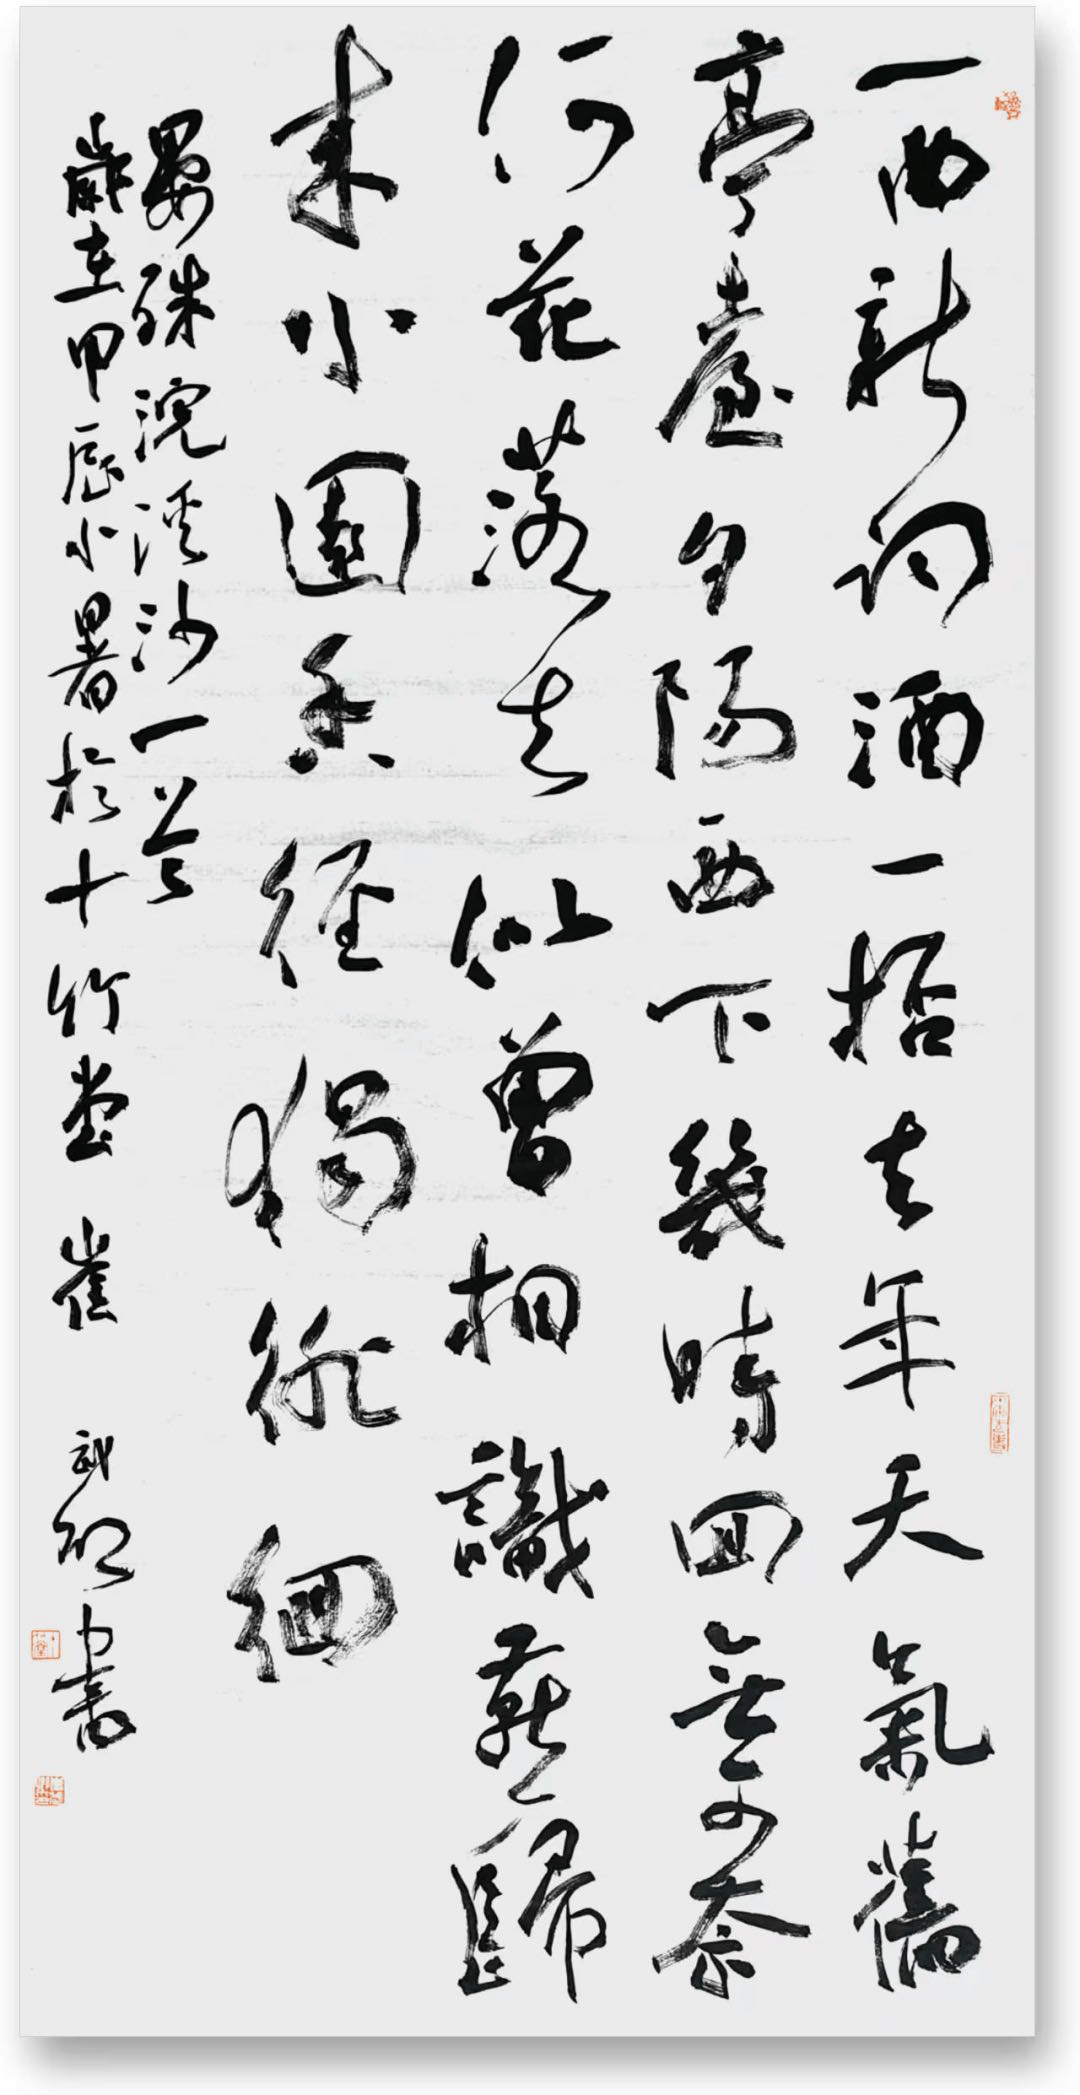 一曲新詞酒一杯去年天氣舊
亭臺夕陽西下幾時回無可奈
何花落去似曾相識燕歸
來小園香徑獨徘徊
晏殊浣溪沙一首
歲在甲辰小暑於十竹堂崔武书